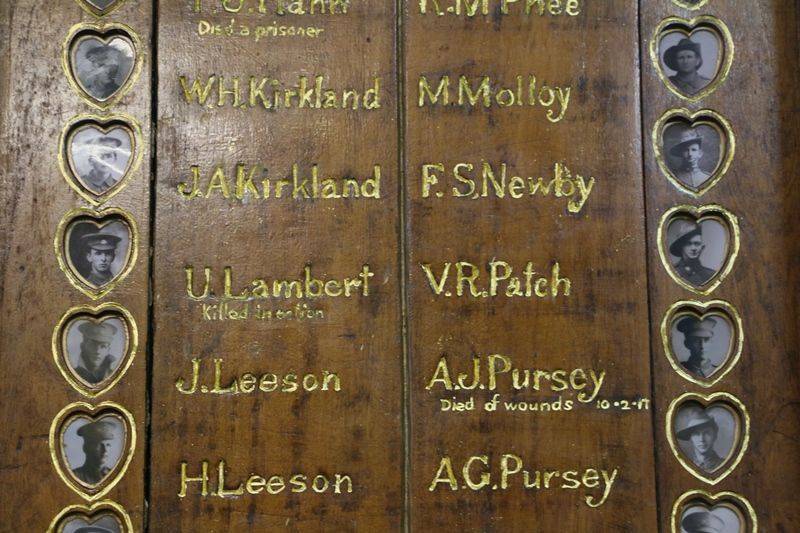 Died a prisoner
W.H.Kirkland
J.A.Kirkland
U.Lambert
Killed in action
J.Leeson
H.Leeson
R.M Phee
M.Molloy
F.S.Newby
V.R.Patch
A.J.Pursey
Died of wounds 10.2.17
A.G.Pursey